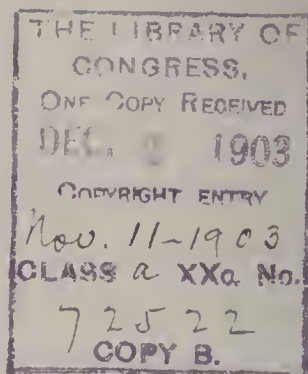 THE LIBRARY OF
CONGRESS,
ONE COPY RECEIVED
DEC. 1903
COPYRIGHT ENTRY
Nov. 11-1903
CLASS a XXc. No.
72522
COPY B.